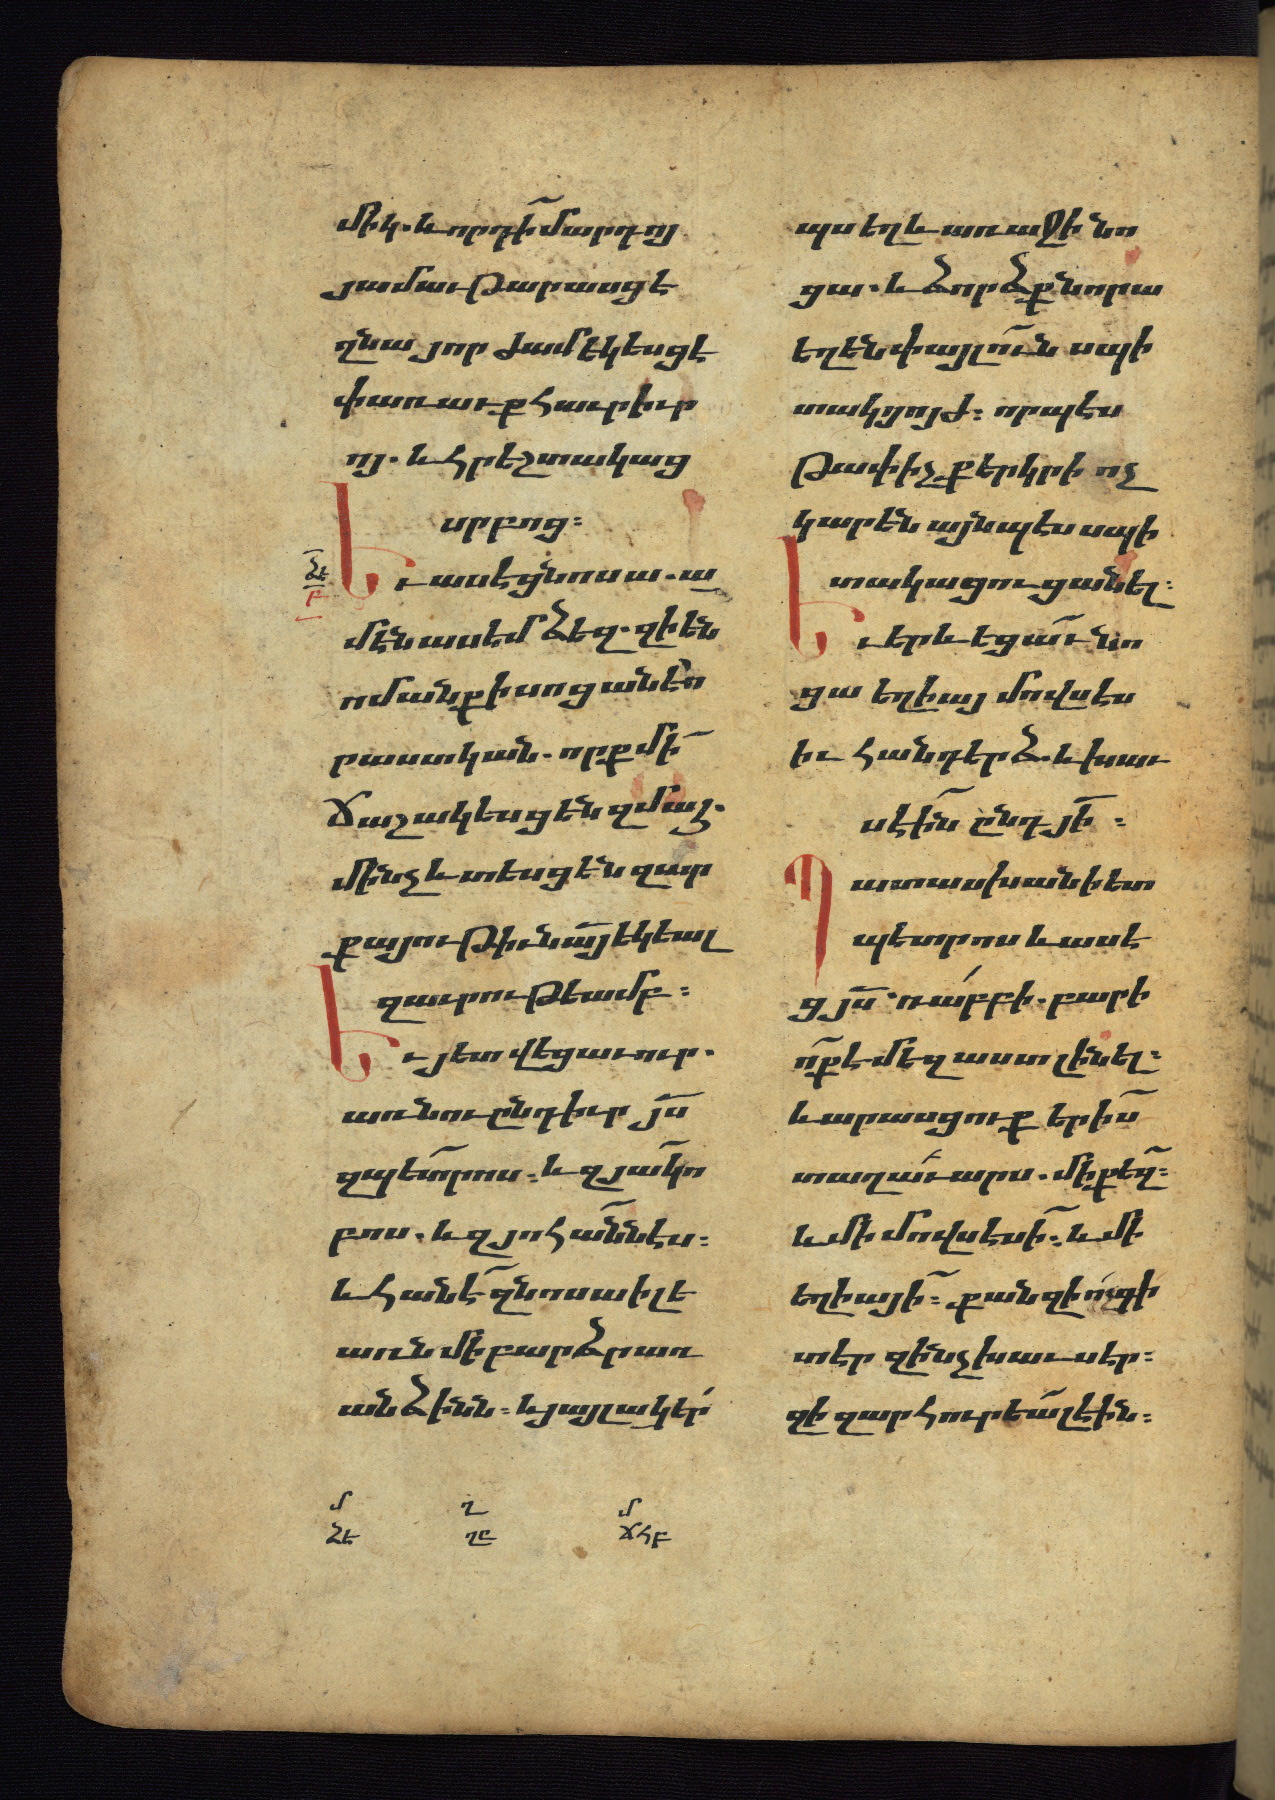 միկ. և որդի մարդոյ
յամաւթ արասցէ
զնա յորժամ եկեսցէ
փառաւք հաւր իւր
ոյ. և հրեշտակաց
սրբոց։
Եւ ասէ ցնոսա. ա
մէն ասեմ ձեզ. զի են
ոմանք ի սոցանէ ո
րաստ կան. որք մի
ճաշակեսցեն զմահ.
մինչև տեսցեն զար
քայութիւն այ եկեալ
զաւրութեամբ։
Եւ յետ վեց աւուր.
առնու ընդ իւր յս
զպետրոս։ և զյակո
բոս. և զյոհաննէս։
և հանէ զնոսա ի լե
առն մի բարձր առ
անձինն։ և յայլակեր
պս եղև առաջի նո
ցա. և ձորձք նորա
եղեն փայլուն սպի
տակ յոյժ։ որպէս
թափիչք երկրի ոչ
կարեն այնպէս սպի
տակացուցանել։
Եւ երևեցաւ նո
ցա եղիայ մովսէս
իւ հանդերձ. և խաւ
սէին ընդ յի։
Պատասխանի ետ
պետրոս և ասէ
ց յս. ռաբբի. բարի
ոք է մեզ աստ լինել։
և արասցուք երիս
տաղաւարս. մի քեզ։
և մի մովսեսի։ և մի
եղիայի։ քանզի ոչ գի
տէր զինչ խաւսէր։
զի զարհուրեալ էին։
ՁԵ
Բ
մ
ձե
ղ
ղը
մ
ճհբ